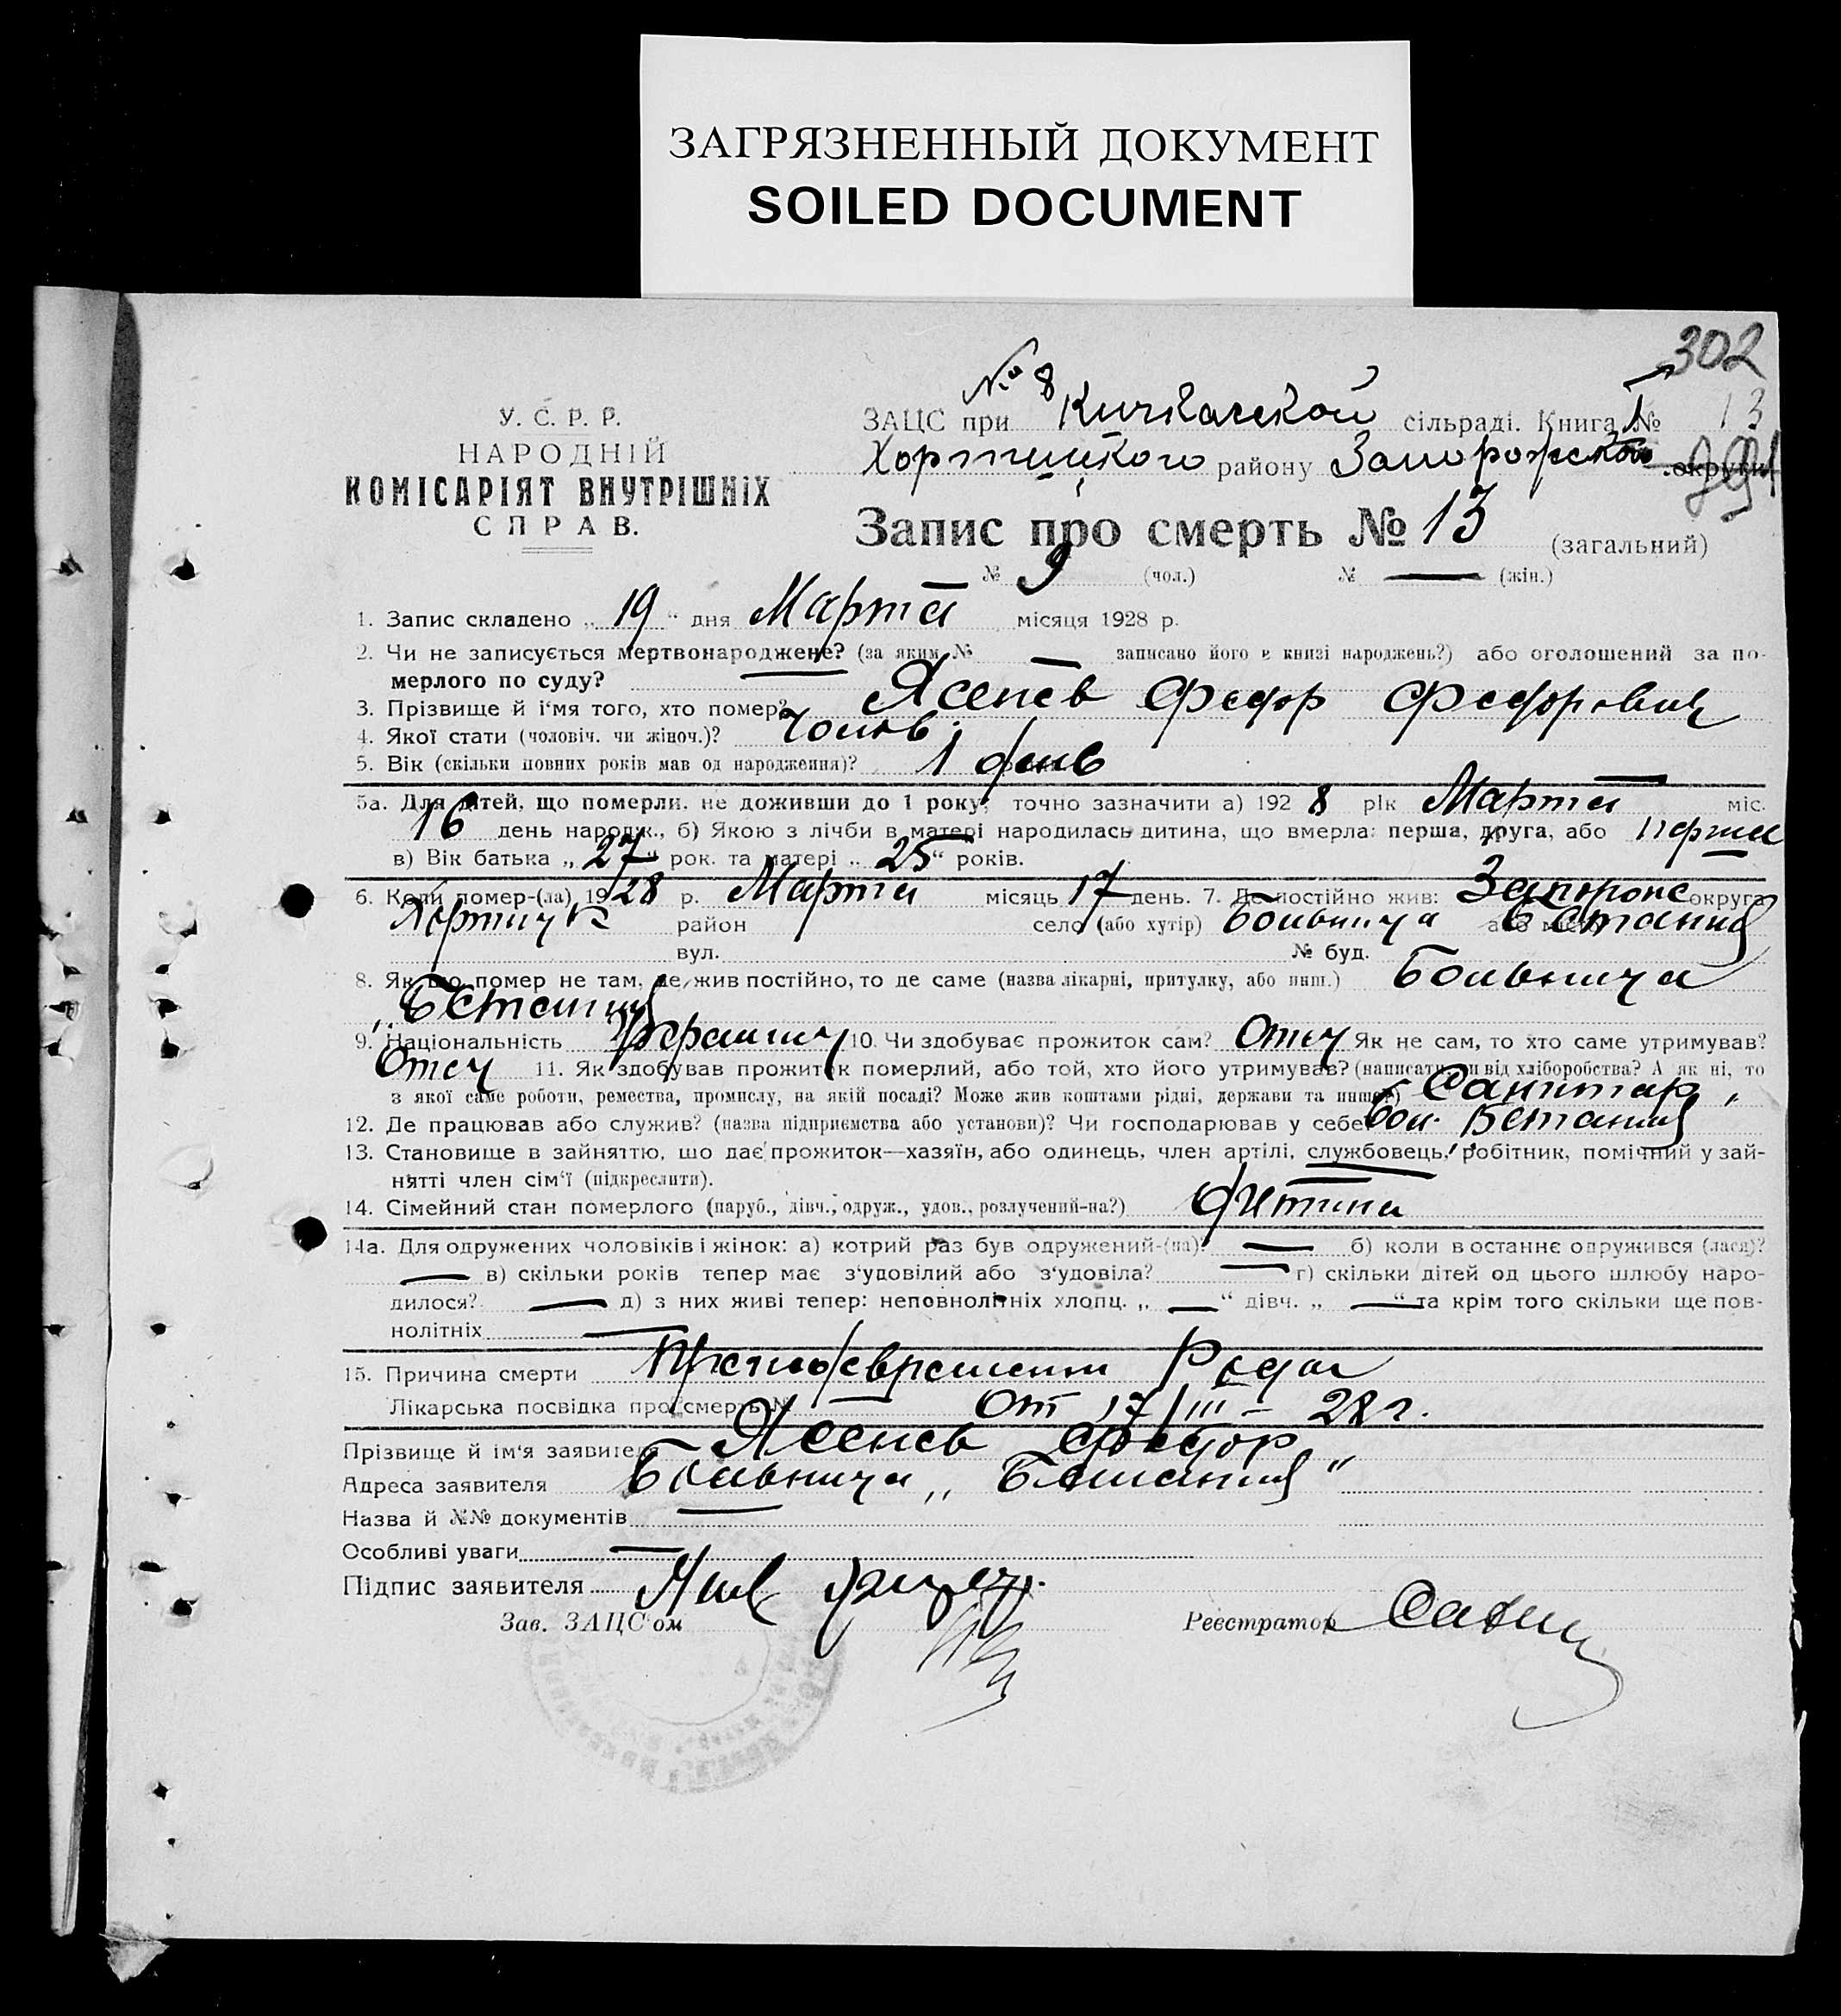 ЗАГРЯЗНЕННЫЙ ДОКУМЕНТ
SOILED DOCUMENT
302
У. С. Р. Р.
НАРОДНІЙ
КОМІСАРІЯТ ВНУТРІШНІХ
СПРАВ.
№ 8
ЗАЦС при Кичкасской сільраді. Книга 1 № 13
Хортицкого району Запорожской округи
Запис про смерть № 13 (загальний)
№ 9 (чол.) № — (жін.)
1. Запис складено „ 19 “ дня Марта місяця 1928 р.
2. Чи не записується мертвонароджене? (за яким № — записано його в книзі народжень?) або оголошений за по-
мерлого по суду? —
3. Прізвище й і'мя того, хто помер? Ясенев Федор Федорович
4. Якої стати (чоловіч. чи жіноч.)? Чолов.
5. Вік (скільки повних років мав од народження)? 1 день
5а. Для дітей, що померли, не доживши до 1 року, точно зазначити а) 192 8 рік Марта міс.
16 день народж., б) Якою з лічби в матері народилась дитина, що вмерла: перша, друга, або
в) Вік батька „ 27 “ рок. та матері „ 25 “ років.
6. Коли помер-(ла) 1928 р. Марта місяць 17 день. 7. Де постійно жив: Запорожс округа
Хортицк район село (або хутір) Больница Бетания
вул. № буд.
8. Як що помер не там, де жив постійно, то де саме (назва лікарні, притулку, або инш.) Больница
„Бетания
9. Національність 10. Чи здобуває прожиток сам? Отец Як не сам, то хто саме утримував?
Отец 11. Як здобував прожиток померлий, або той, хто його утримував? (написати, чи від хліборобства? А як ні, то
з якої саме роботи, ремества, промислу, на якій посаді? Може жив коштами рідні, держави та инше?) Санитар
12. Де працював або служив? (назва підприємства або установи)? Чи господарював у себе? Бол. Бетания
13. Становище в зайняттю, шо дає прожиток—хазяїн, або одинець, член артілі, службовець, робітник, помічний у зай-
нятті член сім'ї (підкреслити).
14. Сімейний стан померлого (паруб., дівч., одруж., удов., розлучений-на?) Дитина
14а. Для одружених чоловіків і жінок: а) котрий раз був одружений-(на)? — б) коли востаннє одружився (лася)?
— в) скільки років тепер має з'удовілий або з'удовіла? — г) скільки дітей од цього шлюбу наро-
дилося? — д) з них живі тепер: неповнолітніх хлопц. „ — “ дівч. „ — “ та крім того скільки ще пов-
нолітніх —
15. Причина смерти Преждевремен Роды
Лікарська посвідка про смерть № — От 17/III – 28 г.
Прізвище й ім'я заявителя Ясенев Федор
Адреса заявителя Больница „Бетания“
Назва й №№ документів —
Особливі уваги —
Підпис заявителя
Зав. ЗАЦС'ом Реєстратор